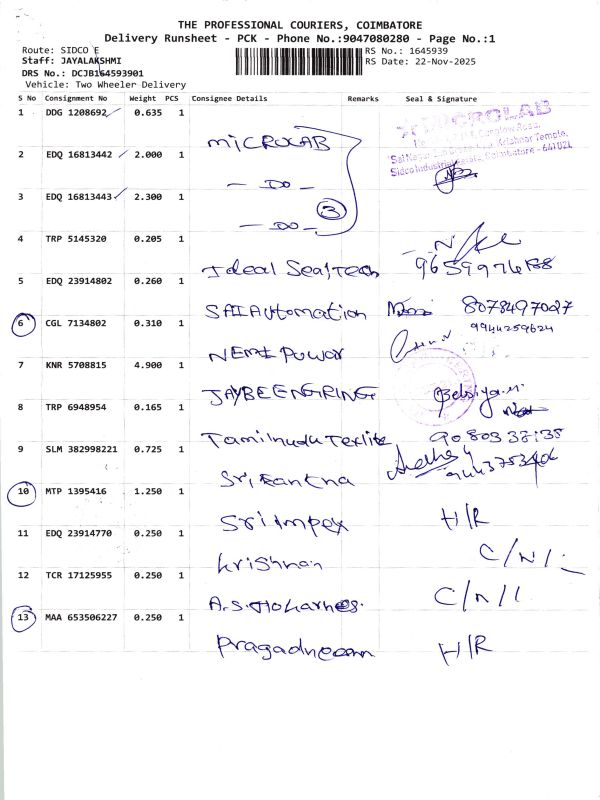 THE PROFESSIONAL COURIERS, COIMBATORE
Delivery Runsheet - PCK - Phone No.:9047080280 - Page No.:1
Route: SIDCO E
RS No.: 1645939
Staff: JAYALAKSHMI
RS Date: 22-Nov-2025
DRS No.: DCJB164593901
Vehicle: Two Wheeler Delivery
S No Consignment No Weight PCS Consignee Details Remarks Seal & Signature
1 DDG 1208692 0.635 1
MICROLAB
2 EDQ 16813442 2.000 1
- DO -
3 EDQ 16813443 2.300 1
- DO - 3
4 TRP 5145320 0.205 1
Ideal Sealtech
5 EDQ 23914802 0.260 1
SAI Automation 8078497027
6 CGL 7134802 0.310 1 9944259624
NEMI Power
7 KNR 5708815 4.900 1
JAYBEE ENGRING
8 TRP 6948954 0.165 1
Tamilnadu Texlite
9 SLM 382998221 0.725 1
Srikantha
10 MTP 1395416 1.250 1
Sri Impex H/R
11 EDQ 23914770 0.250 1
Krishnan C/N/L
12 TCR 17125955 0.250 1
C/N/L
13 MAA 653506227 0.250 1
H/R